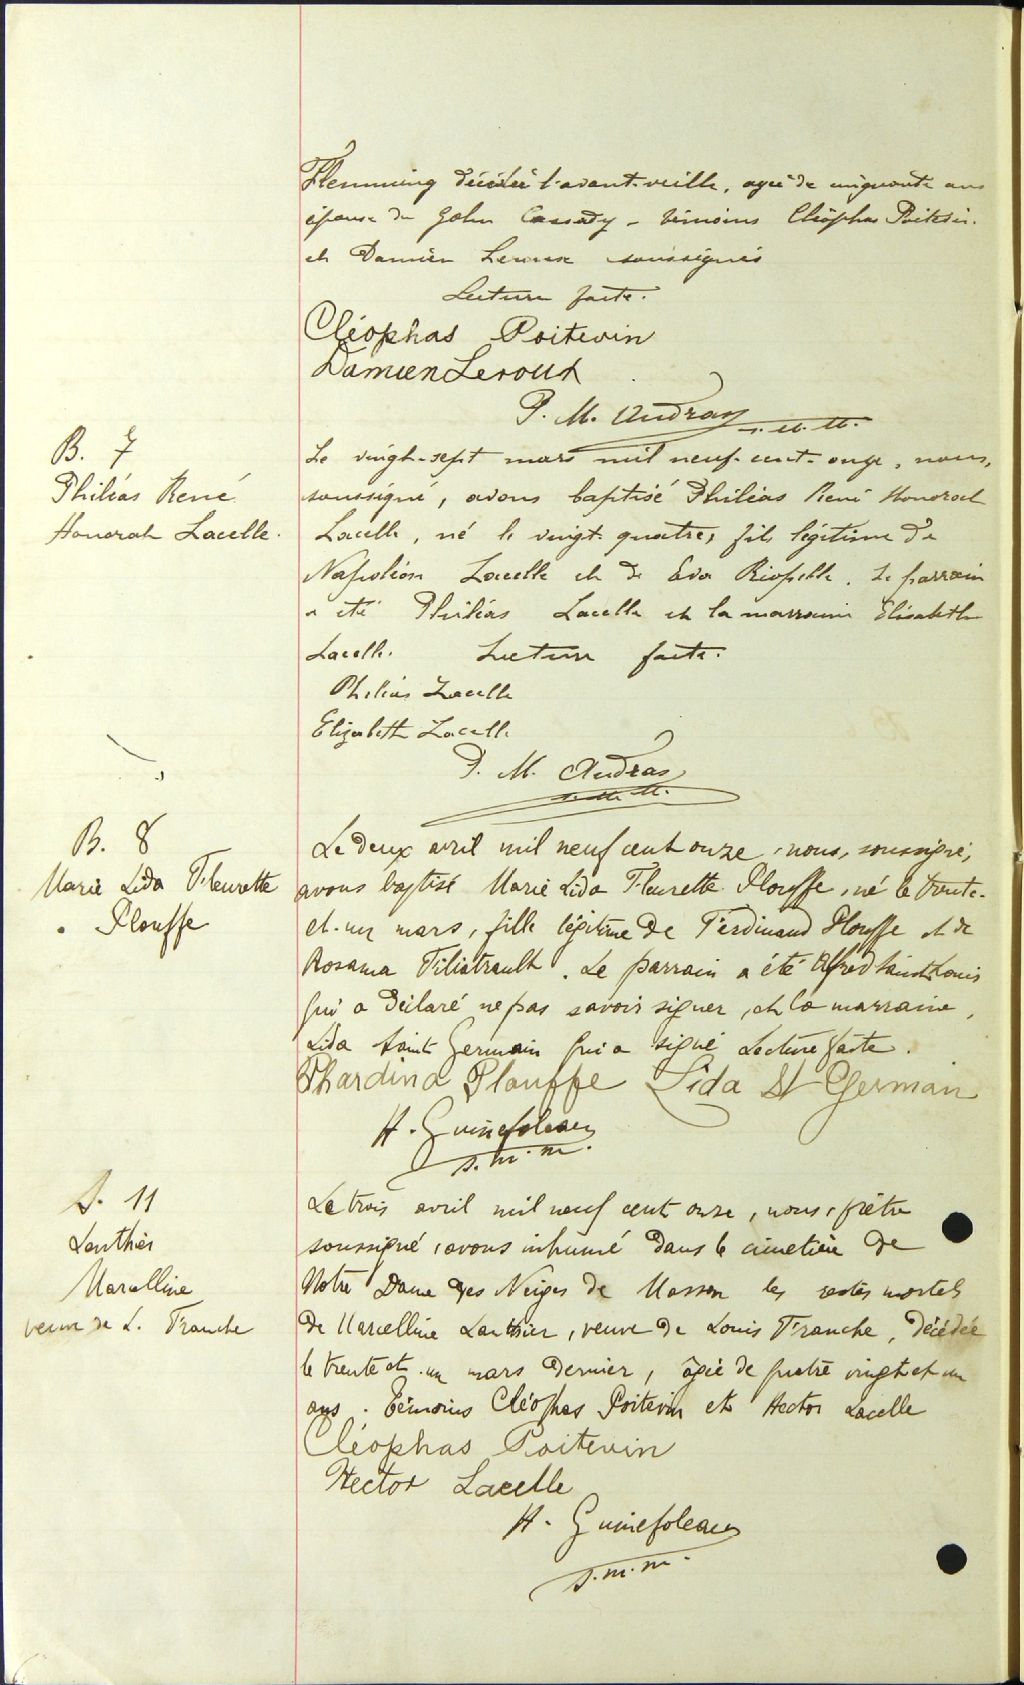 Flemming décédée l'avant-veille, agée de cinquante ans
épouse de John Cassedy - témoins Cléophas Poitevin
et Damien Leroux soussignés
Lecture faite.
Cléophas Poitevin
Damien Leroux
P. M. Audras
s.m.m.
B. 7
Philéas René
Honorat Lacelle.
Le vingt-sept mars mil neuf-cent-onze, nous,
soussigné, avons baptisé Philéas René Honorat
Lacelle, né le vingt-quatre, fils légitime de
Napoléon Lacelle et de Eva Riopelle. Le parrain
a été Philéas Lacelle et la marraine Elisabeth
Lacelle. Lecture faite.
Philéas Lacelle
Elizabeth Lacelle
P. M. Audras
s.m.m.
B. 8
Marie Lida Fleurette
Plouffe
Le deux avril mil neuf cent onze, nous, soussigné,
avons baptisé Marie Lida Fleurette Plouffe, né le trente-
et-un mars, fille légitime de Ferdinand Plouffe et de
Rosanna Filiatrault. Le parrain a été Alfred Saint Louis
qui a déclaré ne pas savoir signer, et la marraine,
Lida Saint Germain qui a signé Lecture faite.
Phardina Plouffe Lida St German
H. Guinefoleau
s.m.m.
S. 11
Lanthier
Marcelline
veuve de L. Franche
Le trois avril mil neuf cent onze, nous, prêtre
soussigné, avons inhumé dans le cimetière de
Notre Dame des Neiges de Masson les restes mortels
de Marcelline Lanthier, veuve de Louis Franche, décédée
le trente et un mars dernier, agée de quatre vingt et un
ans. Témoins Cléophas Poitevin et Hector Lacelle
Cléophas Poitevin
Hector Lacelle
H. Guinefoleau
s.m.m.